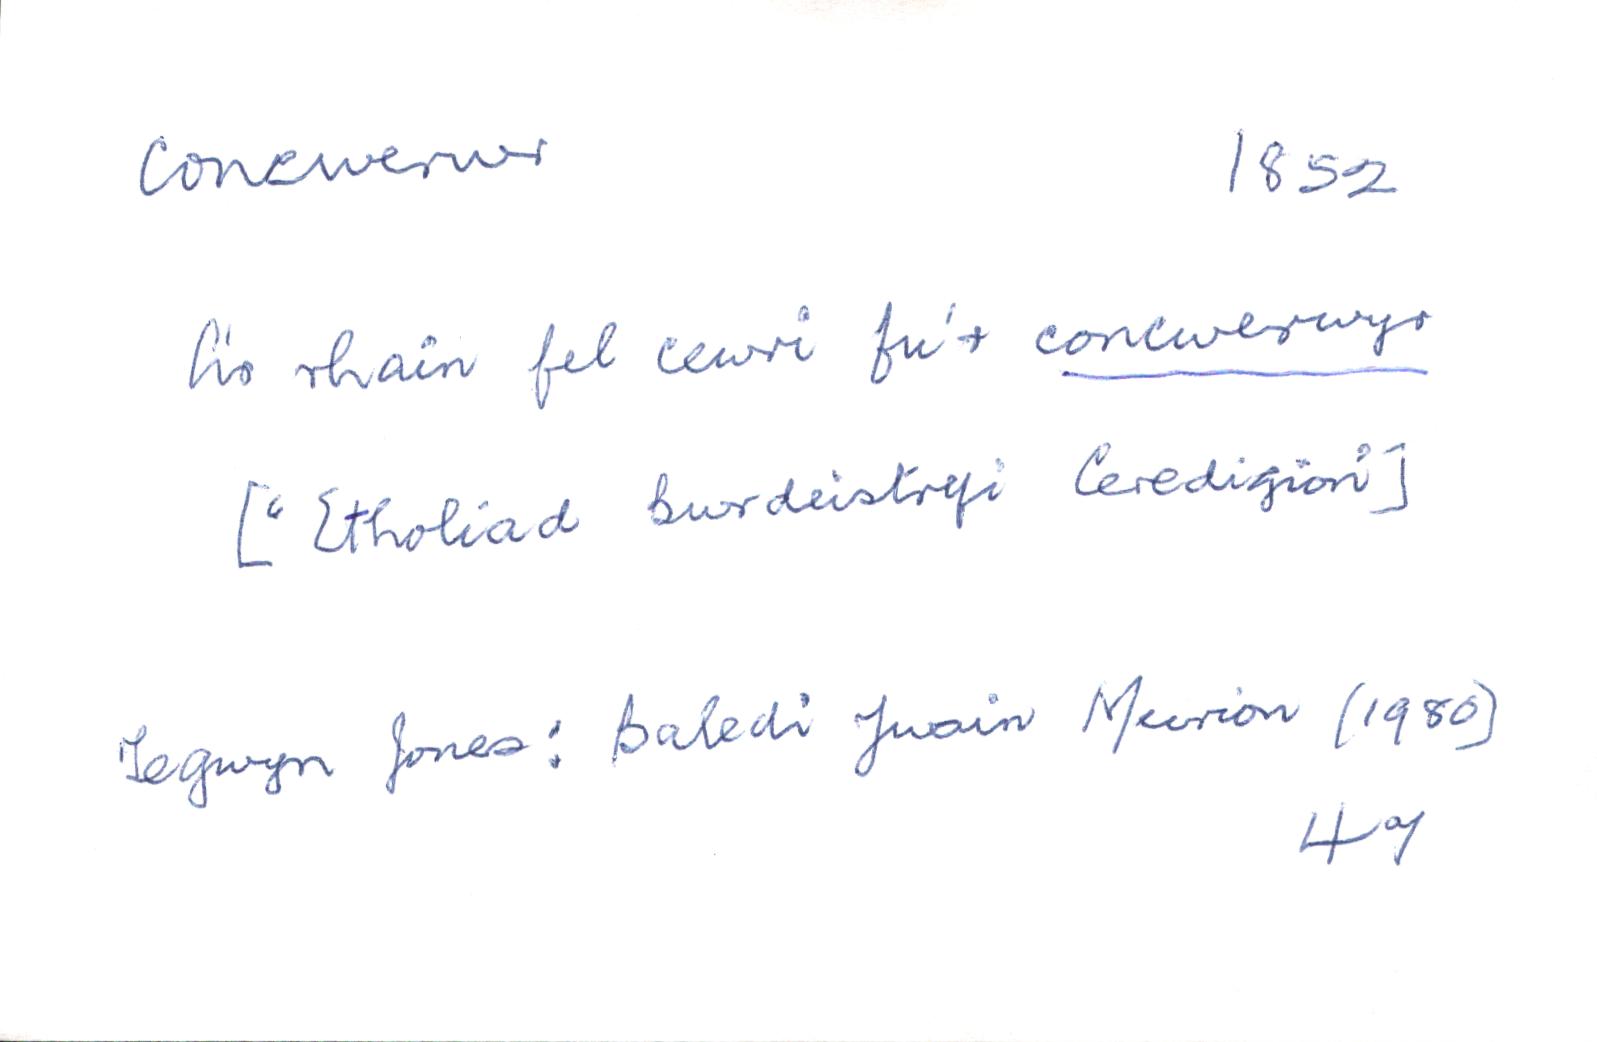 Concwerwr 1852
A'r rhain fel cewri fu'r concwerwyr
["Etholiad Bwrdeistrefi Ceredigion"]
Tegwyn Jones: Baledi Ywain Meirion (1980)
49